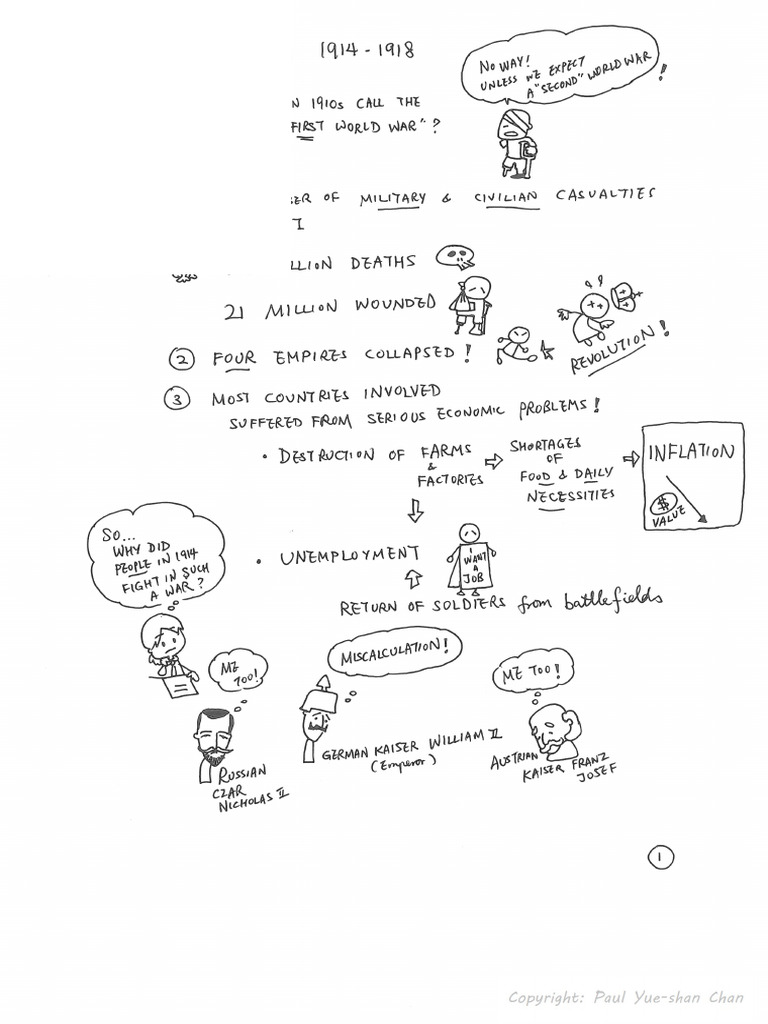 1914 - 1918
NO WAY!
UNLESS WE EXPECT
A "SECOND" WORLD WAR!
N 1910s CALL THE
FIRST WORLD WAR"?
ER OF MILITARY & CIVILIAN CASUALTIES
LLION DEATHS
21 MILLION WOUNDED
② FOUR EMPIRES COLLAPSED!
REVOLUTION!
③ MOST COUNTRIES INVOLVED
SUFFERED FROM SERIOUS ECONOMIC PROBLEMS!
• DESTRUCTION OF FARMS
&
FACTORIES
SHORTAGES
OF
FOOD & DAILY
NECESSITIES
INFLATION
$
VALUE
• UNEMPLOYMENT
I
WANT
A
JOB
RETURN OF SOLDIERS from battlefields
SO...
WHY DID
PEOPLE IN 1914
FIGHT IN SUCH
A WAR?
ME
TOO!
RUSSIAN
CZAR
NICHOLAS II
MISCALCULATION!
GERMAN KAISER WILLIAM II
(Emperor)
ME TOO!
AUSTRIAN
KAISER FRANZ
JOSEF
1
Copyright: Paul Yue-shan Chan